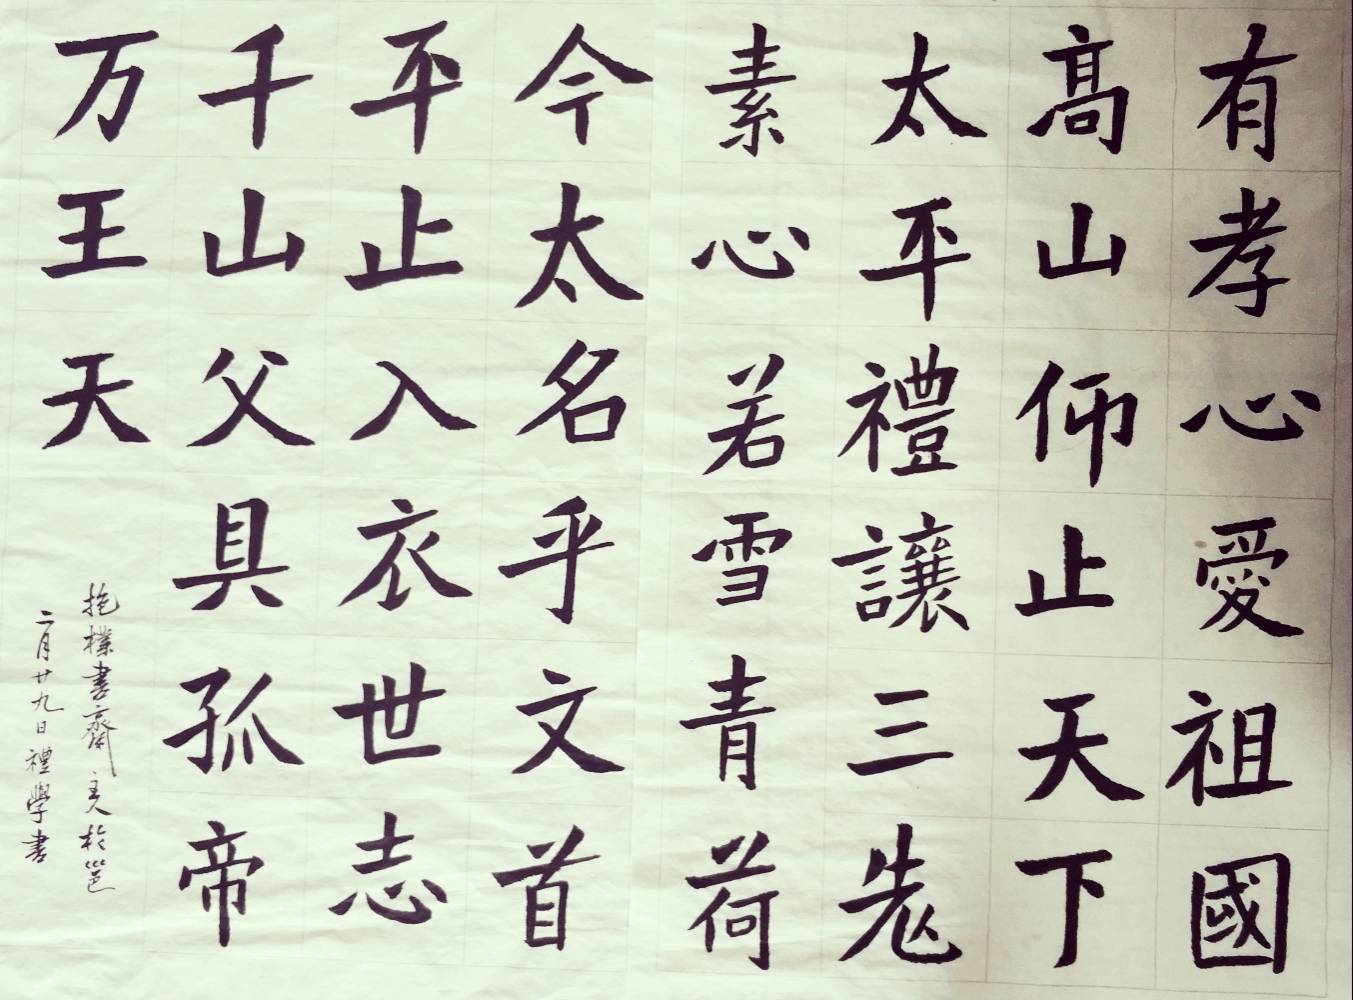 有孝心愛祖國
高山仰止天下
太平禮讓三先
素心若雪青荷
今太名乎文首
平止入衣世志
千山父具孤帝
万王天
抱樸書齋主人於邕
二月廿九日禮學書